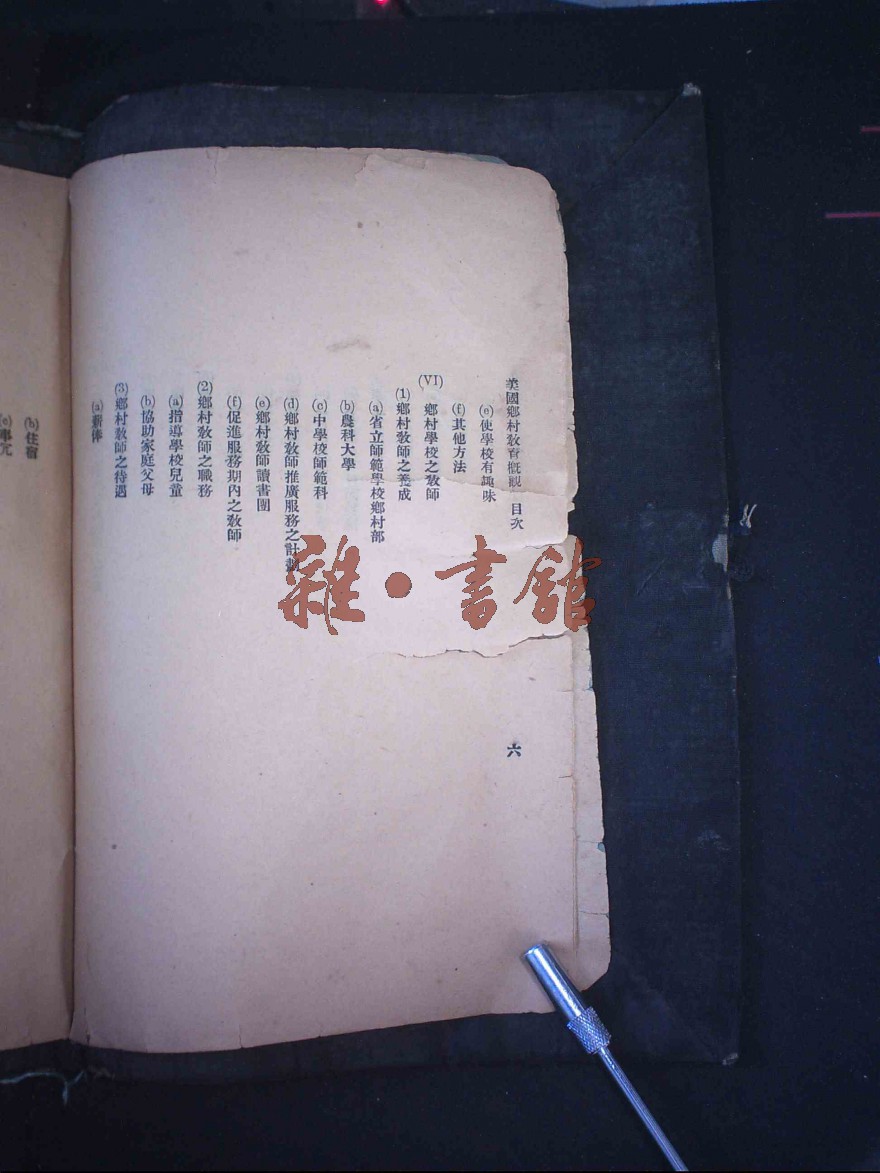 美國鄉村敎育槪觀 目次
六
(e)使學校有趣味
(f)其他方法
(VI) 鄉村學校之敎師
(1)鄉村敎師之養成
(a)省立師範學校鄉村部
(b)農科大學
(c)中學校師範科
(d)鄉村敎師推廣服務之計劃
(e)鄉村敎師讀書團
(f)促進服務期內之敎師
(2)鄉村敎師之職務
(a)指導學校兒童
(b)協助家庭父母
(3)鄉村敎師之待遇
(a)薪俸
(b)住宿
雜·書館